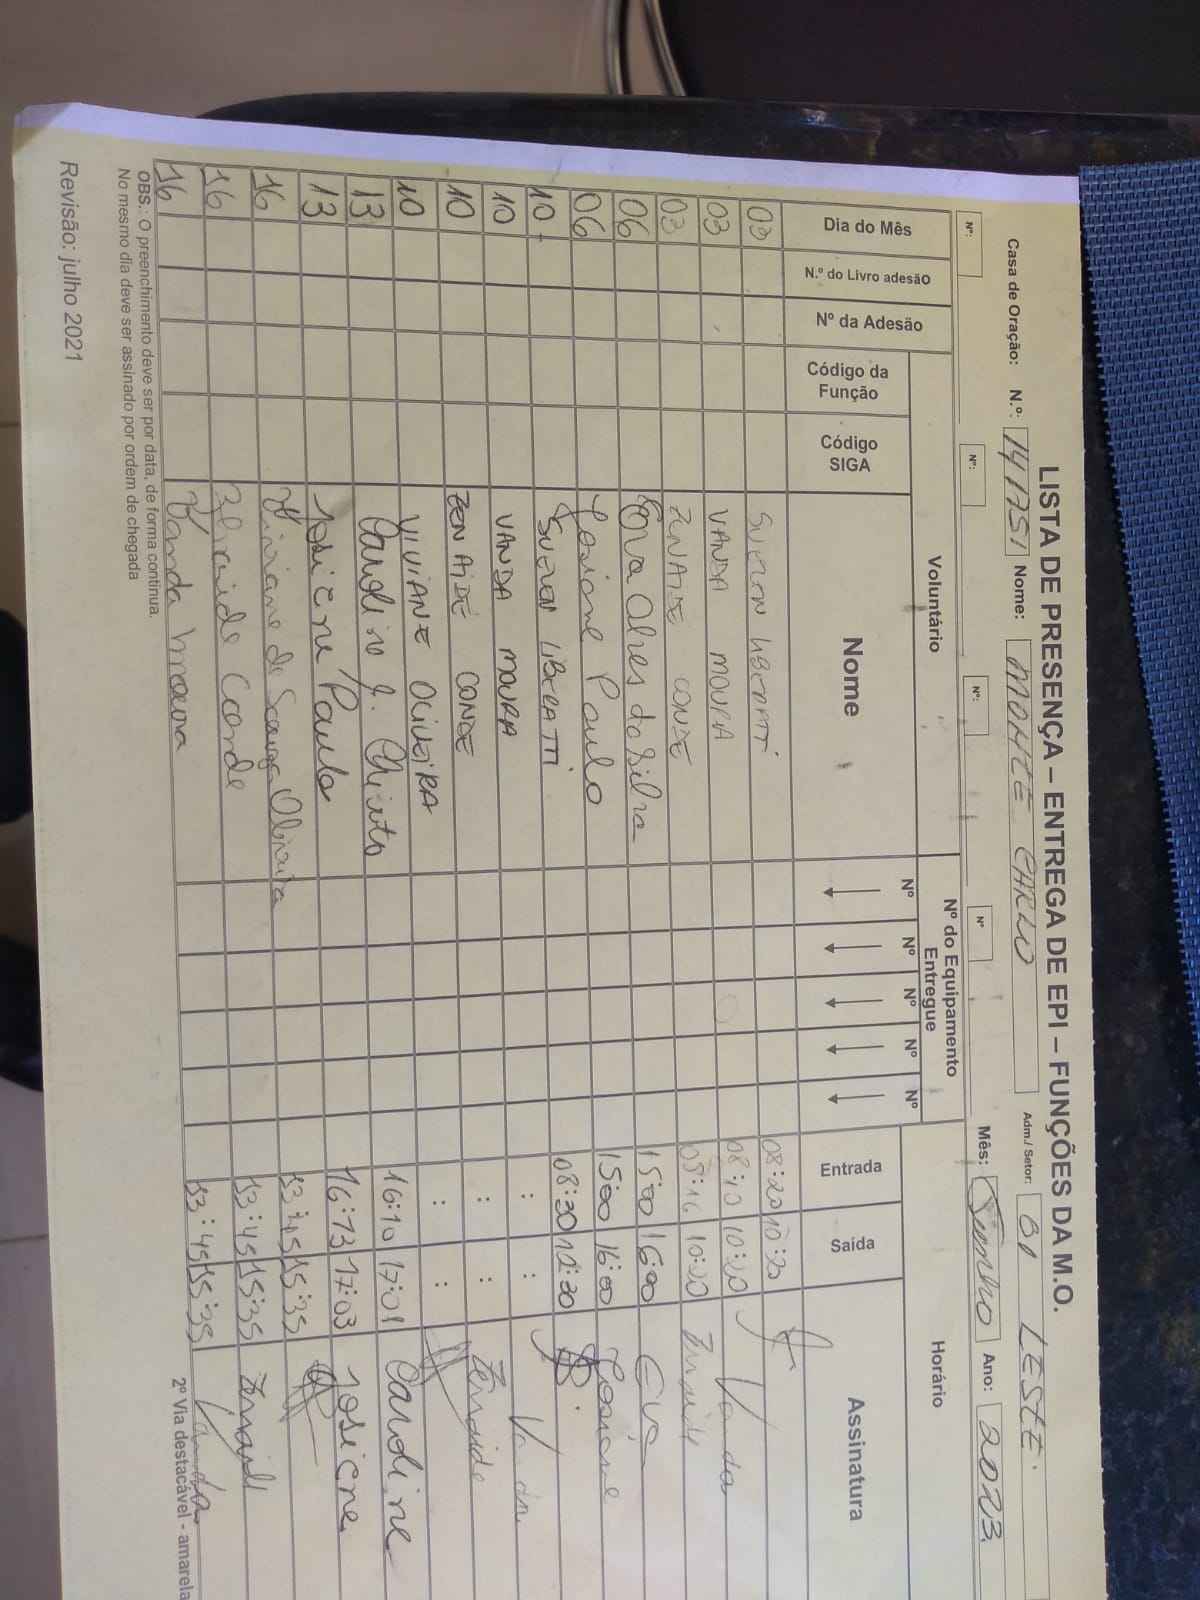 LISTA DE PRESENÇA – ENTREGA DE EPI – FUNÇÕES DA M.O.
Casa de Oração: N.º: 141751 Nome: MONTE CARLO Adm./ Setor: 01 LESTE.
Nº: Nº: Nº: Nº Mês: Junho Ano: 2023.
Voluntário Nº do Equipamento Entregue Horário
Dia do Mês N.º do Livro adesão Nº da Adesão Código da Função Código SIGA Nome Nº Nº Nº Nº Nº Entrada Saída Assinatura
03 SUELEN LIBERATTI 08:20 10:20
03 VANDA MOURA 08:10 10:20 Vanda
03 ZENAIDE CONDE 08:16 10:20 Zenaide
06 Eva Alves da Silva 15:00 16:00 Eva
06 Josiane Paulo 15:00 16:00 Josiane
10 SUELEN LIBERATTI 08:30 12:30
10 VANDA MOURA : : Vanda
10 ZENAIDE CONDE : : Zenaide
10 VIVIANE OLIVEIRA : :
13 Caroline J. 16:10 17:01 Caroline
13 Josiene Paulo 16:13 17:03 Josiene
16 Viviane de Souza Oliveira 13:45 15:35
16 Zenaide Conde 13:45 15:35 Zenaide
16 Vanda Moura 13:45 15:35 Vanda
2º Via destacável - amarela
OBS.: O preenchimento deve ser por data, de forma continua.
No mesmo dia deve ser assinado por ordem de chegada
Revisão: julho 2021